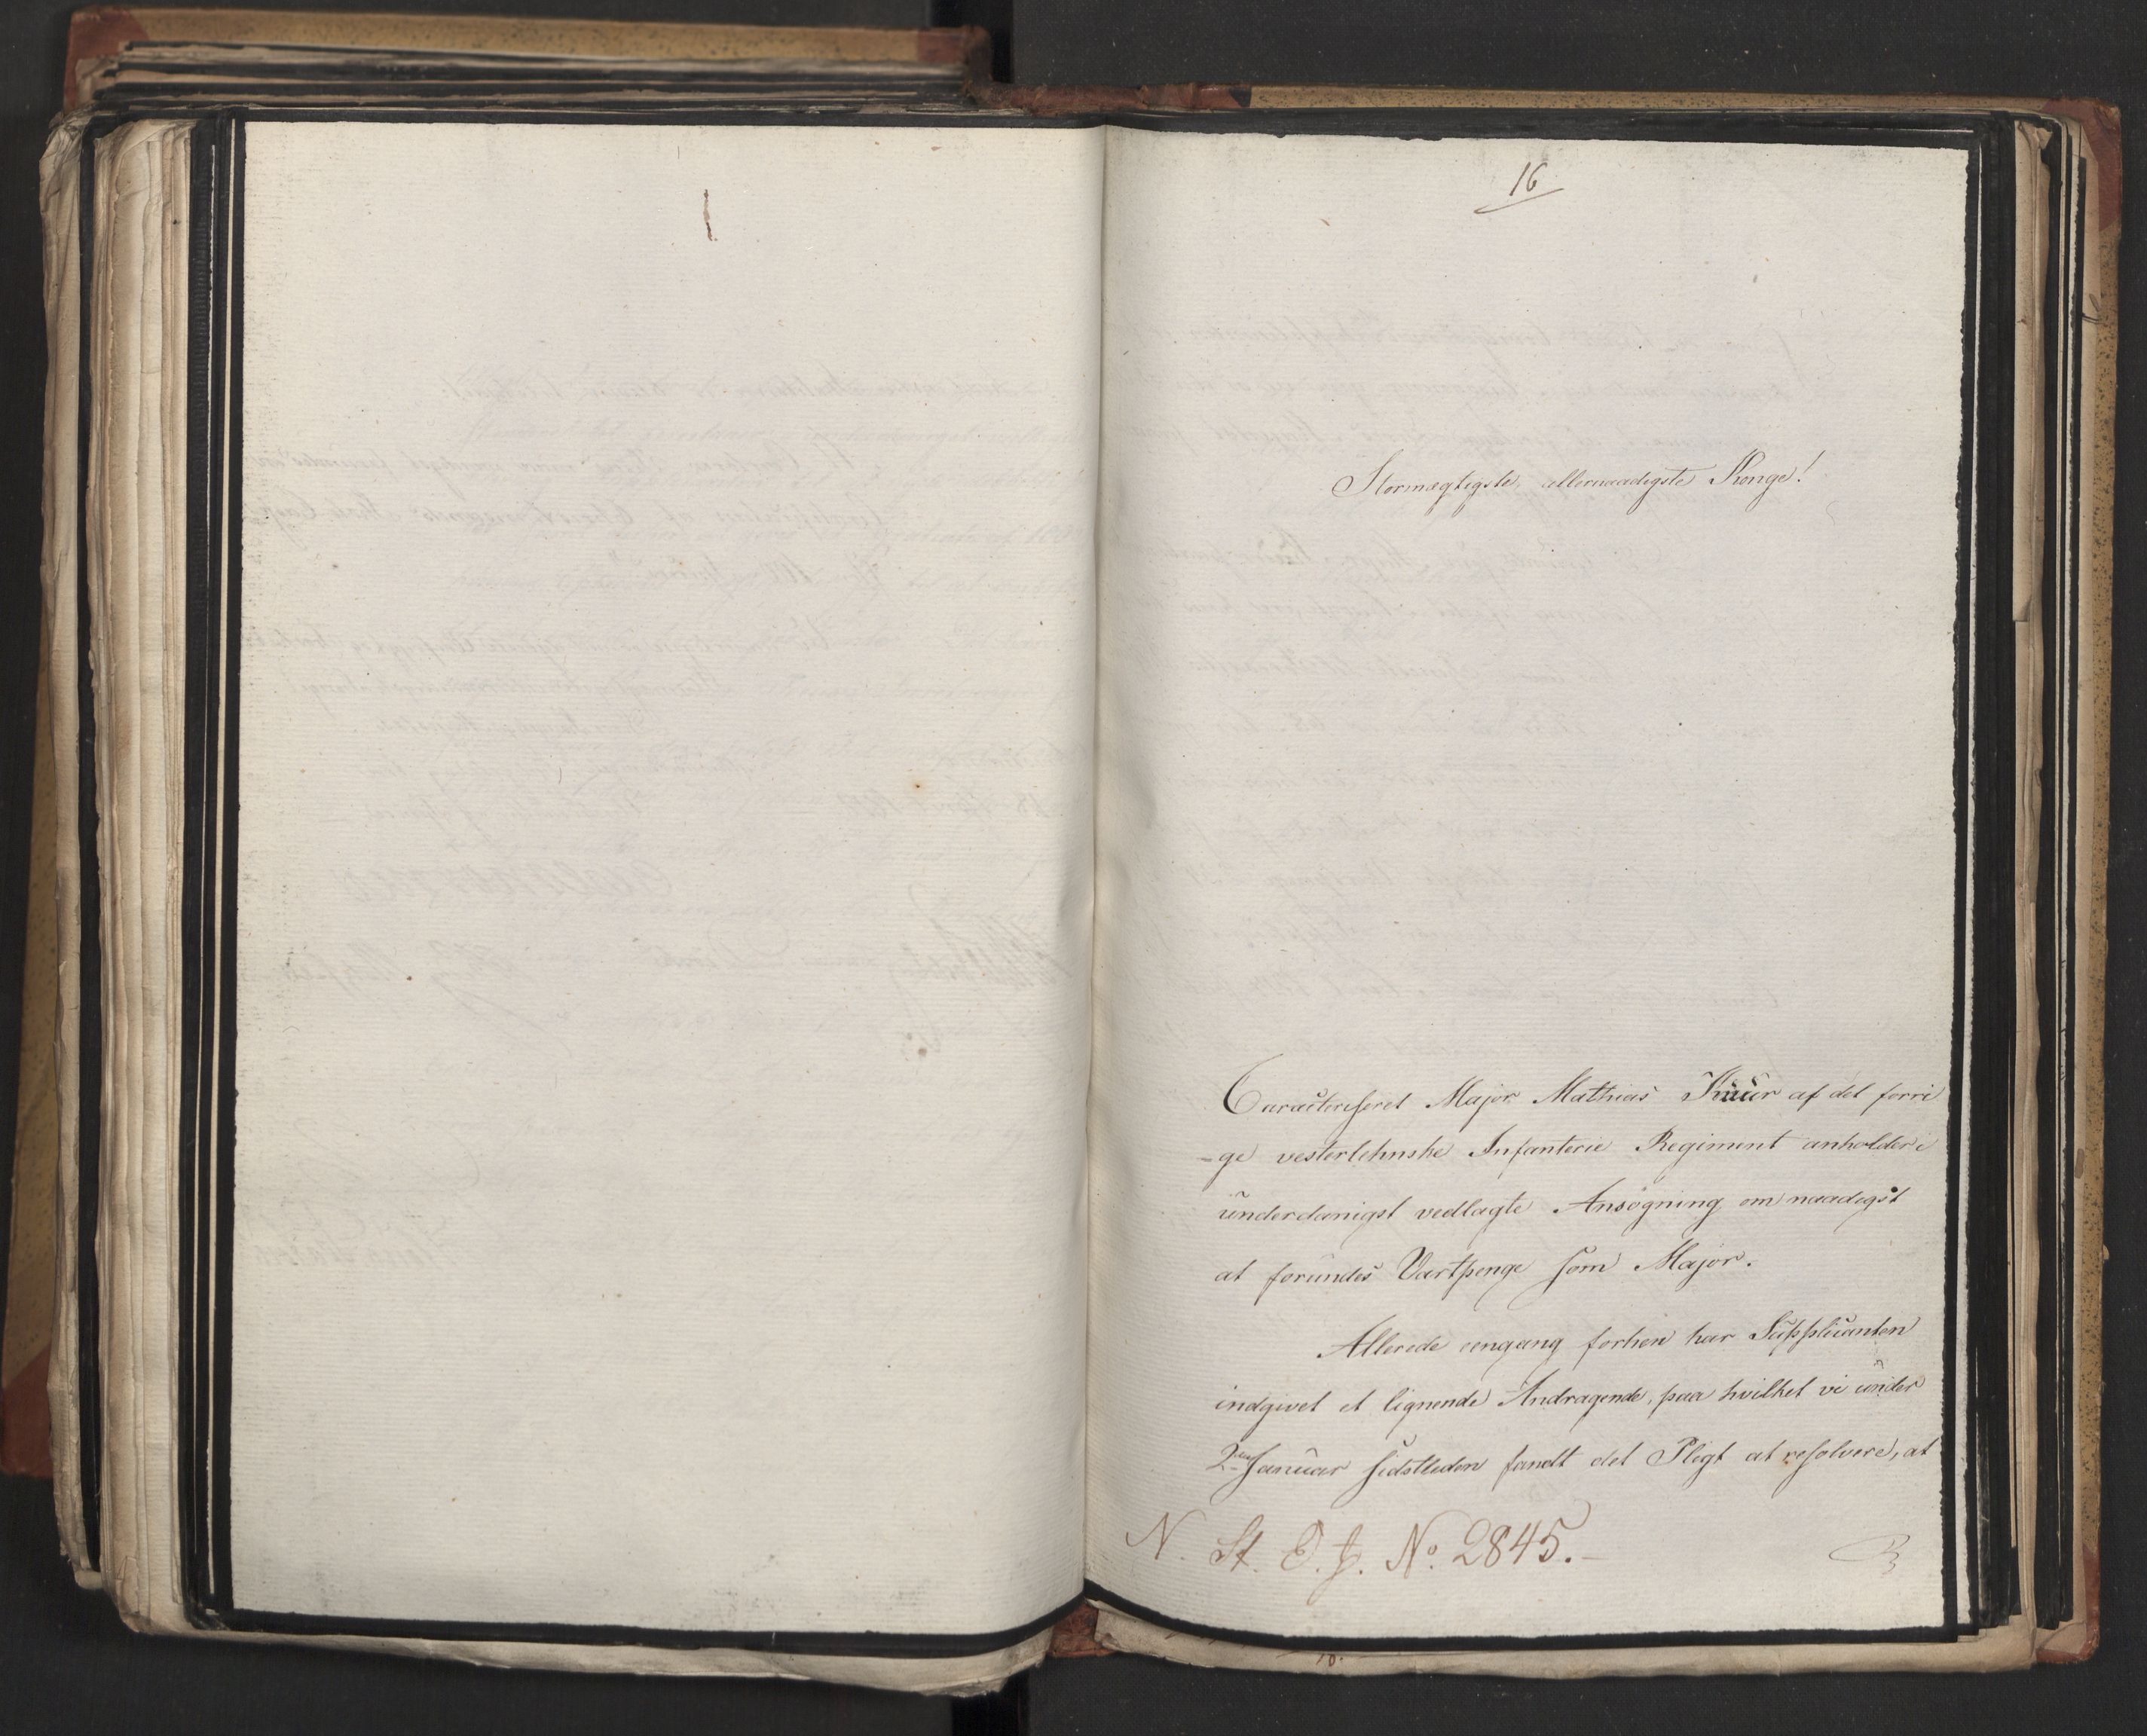 16
Stormægtigste, allernaadigste Konge!
Caracteriseret Major Mathias Knuur af det forri
-ge vesterlehnske Infanterie Regiment anholder i
underdanigst vedlagte Ansøgning om naadigst
at forundes Vartpenge som Major.
Allerede eengang forhen har Supplicanten
indgivet et lignende Andragende, paa hvilket vi under
2den Januar sidstleden fandt det Pligt at resolvere, at
N. St. E. J. No. 2845.-